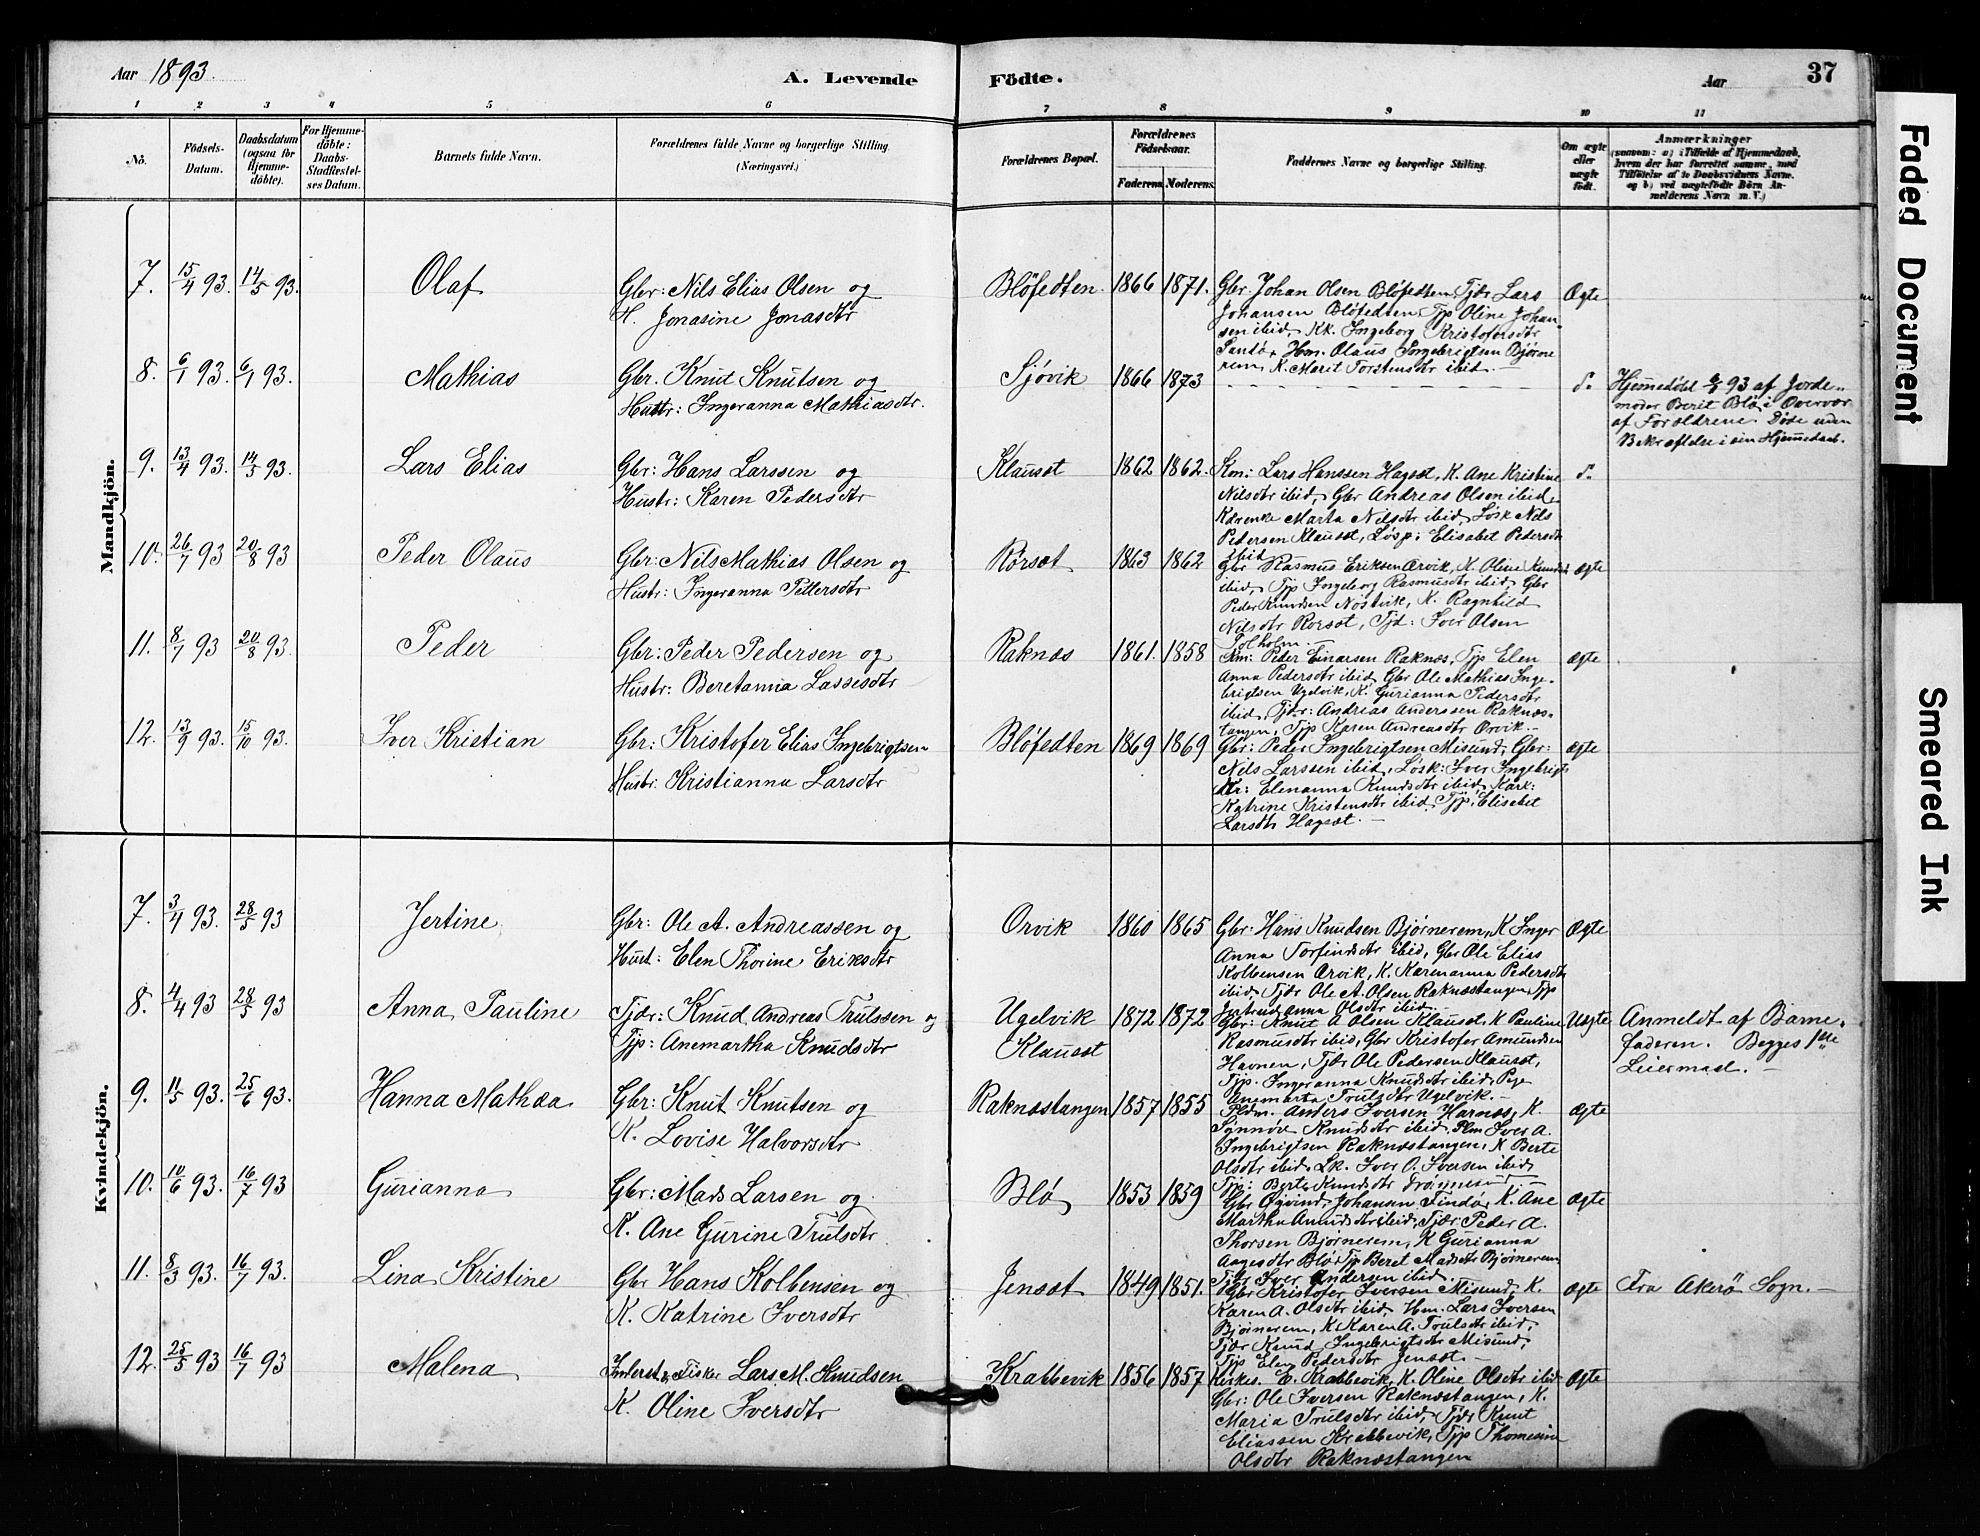 Aar 1893. A. Levende Födte. Aar 37
1 2 3 4 5 6 7 8 9 10 11
No. Födsels-Datum. Daabsdatum (ogsaa for Hjemme-döbte). For Hjemme-döbte: Daabs-Stadfæstel-ses Datum. Barnets fulde Navn. Forældrenes fulde Navne og borgerlige Stilling. (Næringsvei.) Forældrenes Bopæl. Forældrenes Födselsaar. Faderens. Moderens. Faddernes Navne og borgerlige Stilling. Om ægte eller uægte födt. Anmærkninger (saasom: a) i Tilfælde af Hjemmedaab, hvem der har forrettet samme, med Tilföielse af to Daabsvidners Navne, og b) ved uægtefödte Börn An-melderens Navn m.V.)
Mandkjön.
7. 15/4 93. 14/5 93. Olaf Gbr: Nils Elias Olsen og Bløfedten. 1866 1871. Gbr. Johan Olsen Bløfedten, Tjdr Lars Ægte
H. Jonasine Jonasdtr Johansen Bløfedten Tjp Oline Johan-
sen ibid, Kk. Ingeborg Kristofersdtr
Hm. Olaus Ingebrigtsen Bjørne
rem, K. Marit Torstensdtr ibid.
8. 6/1 93. 6/1 93. Mathias Gbr. Knut Knutsen og Sjøvik 1866 1873 d° Hjemmedøbt 6/1 93 af Jorde-
Hustr: Ingeranna Mathiasdtr. moder Berit Blø i Overvær
af Forældrene. Døde uden
9. 13/4 93. 14/5 93. Lars Elias Gbr: Hans Larssen og Klauset 1862 1862. Km: Lars Hanssen Hagset, K. Ane Kristine d°
Hustr: Karen Pedersdtr Nilsdtr ibid, Gbr Andreas Olsen ibid,
Marta Nilsdtr ibid, Løsk Nils
Pedersen Klauset, Løsp: Elisabet Pedersdtr
ibid
10. 26/7 93 20/8 93 Peder Olaus Gbr: Nils Mathias Olsen og Rørset 1863 1862 Gbr Rasmus Eriksen Orvik, K. Oline Knudsd ægte
Hustr: Ingeranna Pettersdtr ibid, Tjp Ingeborg Rasmusdtr ibid Gbr
Peder Knudsen Nøstvik, K. Ragnhild
Nilsdtr Rørset, Tjd: Iver Olsen
Solholm
11. 8/7 93 20/8 93. Peder Gbr: Peder Pedersen og Raknæs 1861. 1858 Km: Peder Einarsen Raknæs, Tjp Elen ægte
Hustr: Beretanna Lassesdtr Anna Pedersdtr ibid Gbr Ole Mathias Inge-
brigtsen Ugelvik, K. Gurianna Pedersdtr
ibid, Tjdr: Andreas Anderssen Raknæs-
tangen, Tjp Karen Andreasdtr Orvik.-
12. 13/9 93. 15/10 93. Iver Kristian Gbr: Kristofer Elias Ingebrigtsen Bløfedten 1869 1869 Gbr: Peder Ingebrigtsen Misund, Gbr: ægte
Hustr. Kristianna Larsdtr Nils Larssen ibid, Løsk: Iver Ingebrigts
Elenanna Knudsdtr ibid,
Katrine Kristensdtr ibid, Tjp: Elisabet
Larsdtr Hagset. -
Kvindekjön.
7. 3/4 93. 28/5 93 Jertine Gbr: Ole A. Andreassen og Orvik 1860 1865 Gbr: Hans Knudsen Bjørnerem, K Inger Ægte
Hust: Elen Thorine Eriksdtr Anna Torfindsdtr ibid, Gbr Ole Elias
Kolbensen Orvik, K. Karenanna Pedersdtr
ibid, Tjdr Ole A. Olsen Raknæstangen, Tjp
Jertrudanna Olsdtr ibid
8. 4/4 93 28/5 93 Anna Pauline Tjdr: Knud Andreas Trulssen og Ugelvik 1872 1872 Gbr: Knut A Olsen Klauset, K Pauline Uægte Anmeldt af Barne-
Tjp: Anemartha Knudsdtr Klauset Rasmusdtr ibid, Gbr Kristofer Amundsen faderen. Begges 1ste
Havnen, Tjdr Ole Pedersen Klauset, Leiermaal. -
Tjp. Ingeranna Knudsdtr ibid, Pige
Anemarta Trulsdtr Ugelvik. -
9. 11/5 93. 25/6 93. Hanna Mathea Gbr: Knut Knutsen og Raknæstangen 1857 1855 Anders Iversen Harnæs, K. ægte
K. Lovise Halvorsdtr Synnøve Knudsdtr ibid, Plm Iver A.
Ingebrigtsen Raknæstangen, K Berte
Olsdtr ibid, Lk. Iver O. Iversen ibid
Tjp: Berte Knudsdtr
10. 10/6 93. 16/7 93 Gurianna Gbr: Mads Larsen og Blø 1853 1859 Gbr Øyvind Johansen Tindø, K. Ane ægte
K. Ane Gurine Trulsdtr Martha Amundsdtr ibid, Tjdr: Peder A.
Thorsen Bjørnerem, K Gurianna
Aagesdtr Blø Tjp Beret Madsdtr Bjørnerem
Tjdr Iver Andersen ibid.
11. 8/3 93. 16/7 93. Lina Kristine Gbr Hans Kolbensen og Jenset 1849 1851. Gbr Kristofer Iversen Misund, K. ægte Fra Akerø Sogn.-
K. Katrine Iversdtr Karen A. Olsdtr ibid, Hm. Lars Iversen
Bjørnerem, K Karen A. Trulsdtr ibid,
Tjdr Knud Ingebrigtsdtr Misund,
Tjp Elen Pedersdtr Jenset. -
12. 25/5 93 16/7 93 Malena Inderst & Fisker Lars M. Knudsen Krabbevik 1856 1857 Kirkes. E. Krabbevik, K. Oline Olsdtr ibid Ægte
K. Oline Iversdtr Gbr: Ole Iversen Raknæstangen, K.
Maria Trulsdtr ibid, Tjdr Knut
Eliassen Krabbevik, Tjp Thomasine
Olsdtr Raknæstangen
Faded Document
Smeared Ink